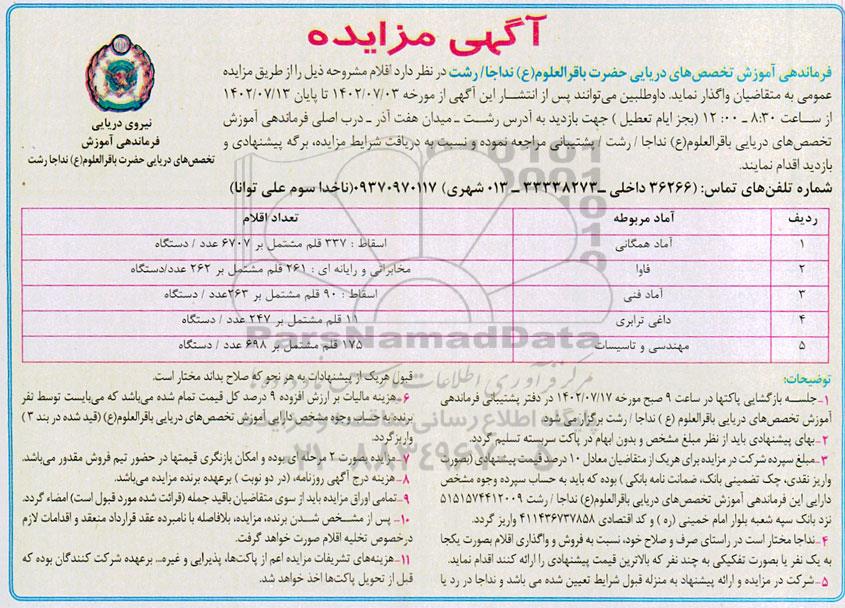 آگهی مزایده
نیروی دریایی
فرماندهی آموزش
تخصص‌های دریایی حضرت باقرالعلوم(ع) نداجا رشت
فرماندهی آموزش تخصص‌های دریایی حضرت باقرالعلوم(ع) نداجا/ رشت در نظر دارد اقلام مشروحه ذیل را از طریق مزایده
عمومی به متقاضیان واگذار نماید. داوطلبین می‌توانند پس از انتشار این آگهی از مورخه ۱۴۰۲/۰۷/۰۳ تا پایان ۱۴۰۲/۰۷/۱۳
از ساعت ۸:۳۰ - ۱۲:۰۰ (بجز ایام تعطیل ) جهت بازدید به آدرس رشت ـ میدان هفت آذر ـ درب اصلی فرماندهی آموزش
تخصص‌های دریایی باقرالعلوم(ع) نداجا / رشت / پشتیبانی مراجعه نموده و نسبت به دریافت شرایط مزایده، برگه پیشنهادی و
بازدید اقدام نمایند.
شماره تلفن‌های تماس: (۳۶۲۶۶ داخلی ـ ۳۳۳۳۸۲۷۳ ـ ۰۱۳ شهری) ۰۹۳۷۰۹۷۰۱۱۷ (ناخدا سوم علی توانا)
ردیف آماد مربوطه تعداد اقلام
۱ آماد همگانی اسقاط : ۳۳۷ قلم مشتمل بر ۶۷۰۷ عدد / دستگاه
۲ فاوا مخابراتی و رایانه ای : ۲۶۱ قلم مشتمل بر ۲۶۲ عدد/دستگاه
۳ آماد فنی اسقاط : ۹۰ قلم مشتمل بر ۲۶۳ عدد / دستگاه
۴ داغی ترابری ۱۱ قلم مشتمل بر ۲۴۷ عدد / دستگاه
۵ مهندسی و تاسیسات ۱۷۵ قلم مشتمل بر ۶۹۸ عدد / دستگاه
ParsNamadData
مرکز فرآوری اطلاعات
پایگاه اطلاع رسانی مناقصه و مزایده
توضیحات:
۱ـ جلسه بازگشایی پاکتها در ساعت ۹ صبح مورخه ۱۴۰۲/۰۷/۱۷ در دفتر پشتیبانی فرماندهی
آموزش تخصص‌های دریایی باقرالعلوم (ع ) نداجا / رشت برگزار می شود
۲ـ بهای پیشنهادی باید از نظر مبلغ مشخص و بدون ابهام در پاکت سربسته تسلیم گردد.
۳ـ مبلغ سپرده شرکت در مزایده برای هریک از متقاضیان معادل ۱۰ درصد قیمت پیشنهادی (بصورت
واریز نقدی، چک تضمینی بانک، ضمانت نامه بانکی ) بوده که باید به حساب سپرده وجوه مشخص
دارایی این فرماندهی آموزش تخصص‌های دریایی باقرالعلوم(ع) نداجا / رشت ۵۱۵۱۵۷۴۴۱۲۰۰۹
نزد بانک سپه شعبه بلوار امام خمینی (ره ) و کد اقتصادی ۴۱۱۴۳۶۷۳۷۸۵۸ واریز گردد.
۴ـ نداجا مختار است در راستای صرف و صلاح خود، نسبت به فروش و واگذاری اقلام بصورت یکجا
به یک نفر یا بصورت تفکیکی به چند نفر که بالاترین قیمت پیشنهادی را ارائه کنند اقدام نماید.
۵ـ شرکت در مزایده و ارائه پیشنهاد به منزله قبول شرایط تعیین شده می باشد و نداجا در رد یا
قبول هریک از پیشنهادات به هر نحو که صلاح بداند مختار است.
۶ـ هزینه مالیات بر ارزش افزوده ۹ درصد کل قیمت تمام شده می‌باشد که می‌بایست توسط نفر
برنده به حساب وجوه مشخص دارایی آموزش تخصص‌های دریایی باقرالعلوم(ع) (قید شده در بند ۳ )
واریز گردد.
۷ـ مزایده بصورت ۲ مرحله ای بوده و امکان بازنگری قیمتها در حضور تیم فروش مقدور می‌باشد.
۸ـ هزینه درج آگهی روزنامه، (در دو نوبت ) برعهده برنده مزایده می‌باشد.
۹ـ تمامی اوراق مزایده باید از سوی متقاضیان باقید جمله (قرائت شده مورد قبول است) امضاء گردد.
۱۰ـ پس از مشخص شدن برنده، مزایده، بلافاصله با نامبرده عقد قرارداد منعقد و اقدامات لازم
درخصوص تخلیه اقلام صورت خواهد گرفت.
۱۱ـ هزینه‌های تشریفات مزایده اعم از پاکت‌ها، پذیرایی و غیره... برعهده شرکت کنندگان بوده که
قبل از تحویل پاکت‌ها اخذ خواهد شد.